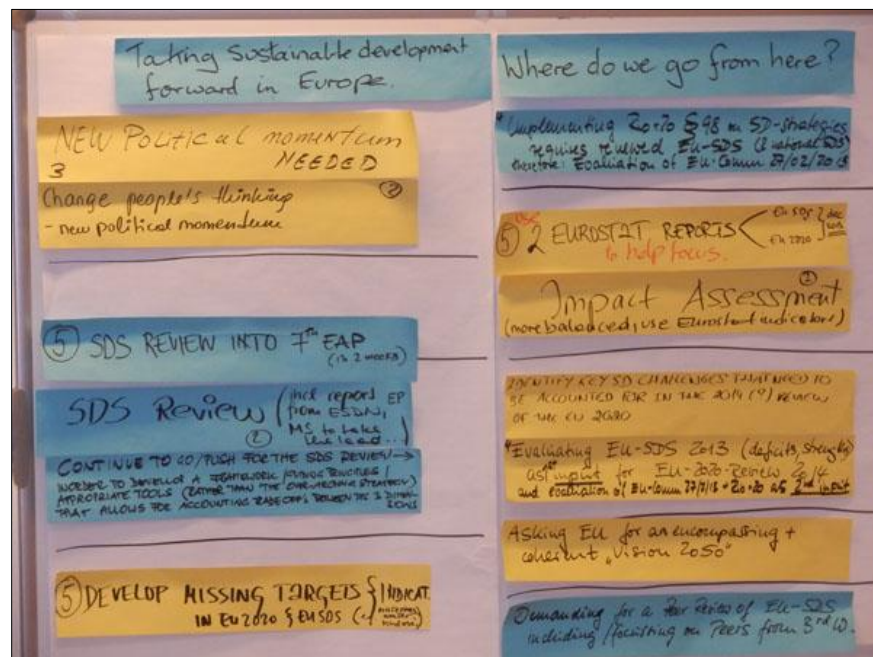 Taking Sustainable development
forward in Europe.
NEW Political momentum
3 NEEDED
Change people's thinking ②
- new political momentum
⑤ SDS REVIEW INTO 7th EAP
(in 2 weeks)
SDS Review (incl report EP
② from ESDN,
MS to take
the lead...)
CONTINUE TO GO/PUSH FOR THE SDS REVIEW →
IN ORDER TO DEVELOP A FRAMEWORK /GUIDING PRINCIPLES /
APROPRIATE TOOLS (RATHER THAN THE STRATEGY)
THAT ALLOWS FOR ACCOUNTING TRADE OFFS BETWEEN THE 3 DIMEN-
SIONS
⑤ DEVELOP MISSING TARGETS { INDICAT.
IN EU2020 & EU SDS
Where do we go from here?
Implementing Rio+20 § 98 on SD-strategies
requires renewed EU-SDS (& national SDS)
therefore: Evaluation of EU-Comm 27/02/2013
USE
⑤ 2 EUROSTAT REPORTS < EU SDS } dec
to help focus. EU 2020
Impact Assessment ②
(more balanced, use Eurostat indicators)
IDENTIFY KEY SD CHALLENGES THAT NEED TO
BE ACCOUNTED FOR IN THE 2014 (?) REVIEW
OF THE EU 2020
Evaluating EU-SDS 2013 (deficits, strengths)
as 1st input for EU-2020-Review 2014
and evaluation of EU-Comm 27/2/13 + Rio+20 as 2nd input
Asking EU for an encompassing +
coherent „Vision 2050"
Demanding for a Peer Review of EU-SDS
including /focusing on Peers from 3rd W.